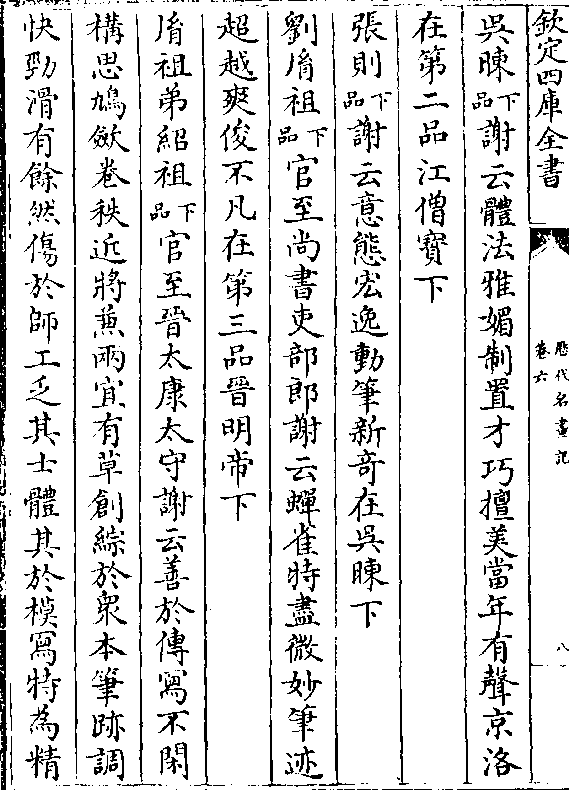 欽定四庫全書
歷代名畫記
卷六
八
吳暕下品謝云體法雅媚制置才巧擅美當年有聲京洛
在第二品江僧寶下
張則下品謝云意態宏逸動筆新奇在吳暕下
劉胤祖下品官至尚書吏部郎謝云蟬雀特盡微妙筆迹
超越爽俊不凡在第三品晉明帝下
胤祖弟紹祖下品官至晉太康太守謝云善於傳寫不閑
構思鳩斂卷秩近將兼兩宜有草創綜於衆本筆跡調
快勁滑有餘然傷於師工乏其士體其於模寫特為精